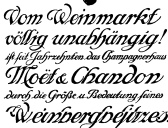 Vom Weinmarkt
völlig unabhängig!
ist seit Jahrzehnten das Champagnerhaus
Moët & Chandon
durch die Größe u. Bedeutung seines
Weinbergbesitzes